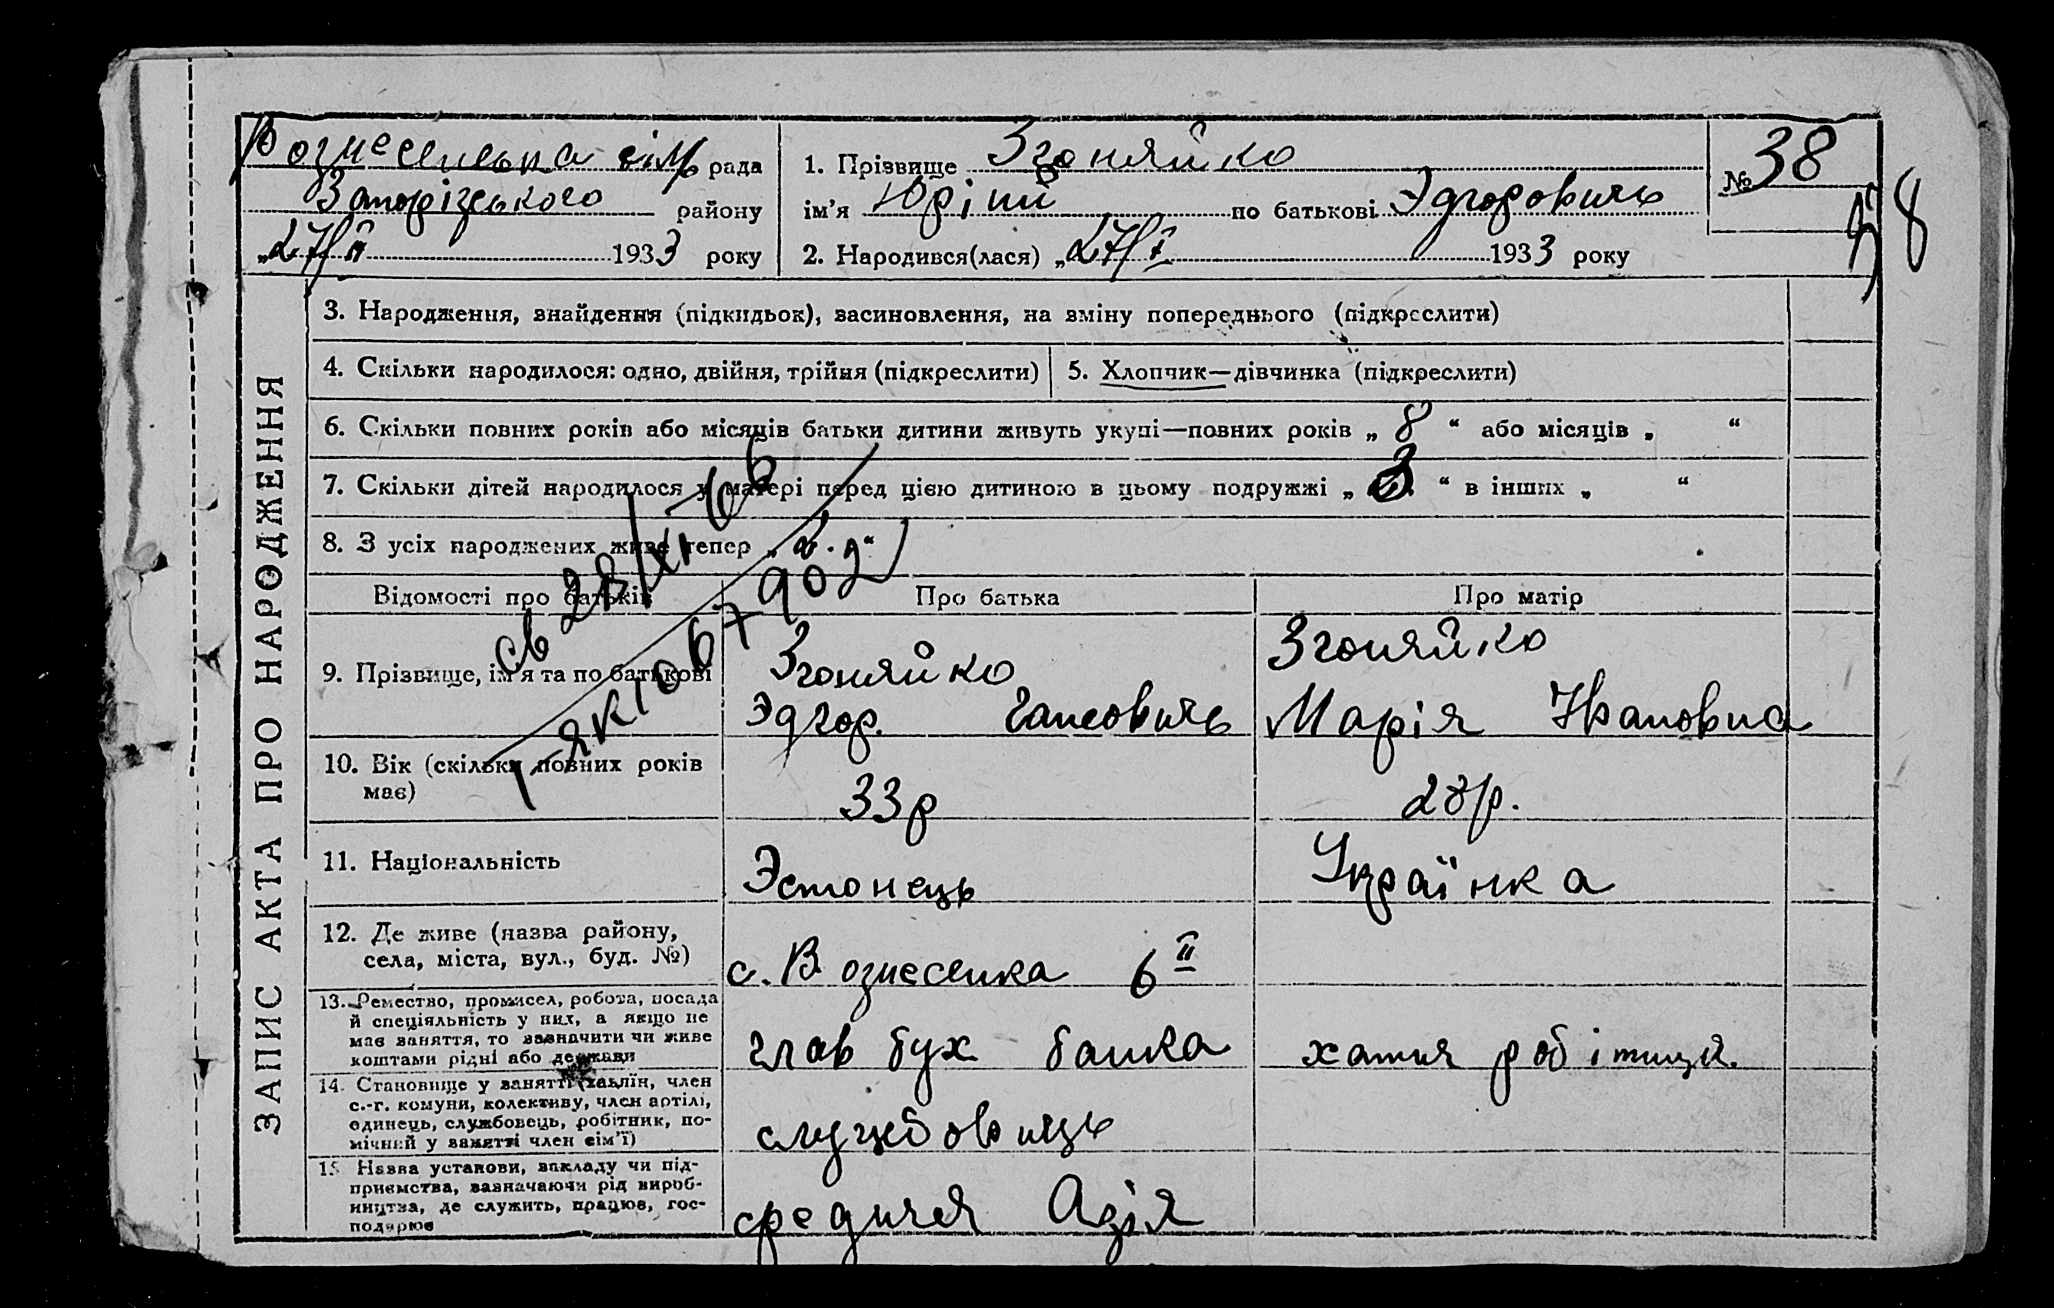 Вознесенська сіль рада
Запорізького району
„27/II 1933 року
1. Прізвище Згоняйко
ім’я Юрій по батькові Эдгорович
2. Народився(лася) „27/I 1933 року
№ 38
38
ЗАПИС АКТА ПРО НАРОДЖЕННЯ
3. Народження, знайдення (підкидьок), засиновлення, на зміну попереднього (підкреслити)
4. Скільки народилося: одно, двійня, трійня (підкреслити)
5. Хлопчик—дівчинка (підкреслити)
6. Скільки повних років або місяців батьки дитини живуть укупі—повних років „ 8 “ або місяців „ “
7. Скільки дітей народилося у матері перед цією дитиною в цьому подружжі „ 3 “ в інших „ “
8. З усіх народжених живе тепер „ 2 “
св 28/XI-66
1-ЯК 067902
Відомості про батьків Про батька Про матір
9. Прізвище, ім’я та по батькові
Згоняйко
Эдгор. Гансович
Згоняйко
Марія Ивановна
10. Вік (скільки повних років
має)
33р
28р.
11. Національність
Эстонець
Українка
12. Де живе (назва району,
села, міста, вул., буд. №)
с. Вознесенка 6 II
13. Ремество, промисел, робота, посада
й спеціяльність у них, а якщо не
має заняття, то зазначити чи живе
коштами рідні або держави
глав бух банка
хатня робітниця.
14. Становище у занятті (хазяїн, член
с.-г. комуни, колективу, член артілі,
одинець, службовець, робітник, по-
мічний у занятті член сім’ї)
службовець
15. Назва установи, закладу чи під-
приємства, зазначаючи рід вироб-
ництва, де служить, працює, гос-
подарює
средняя Азія